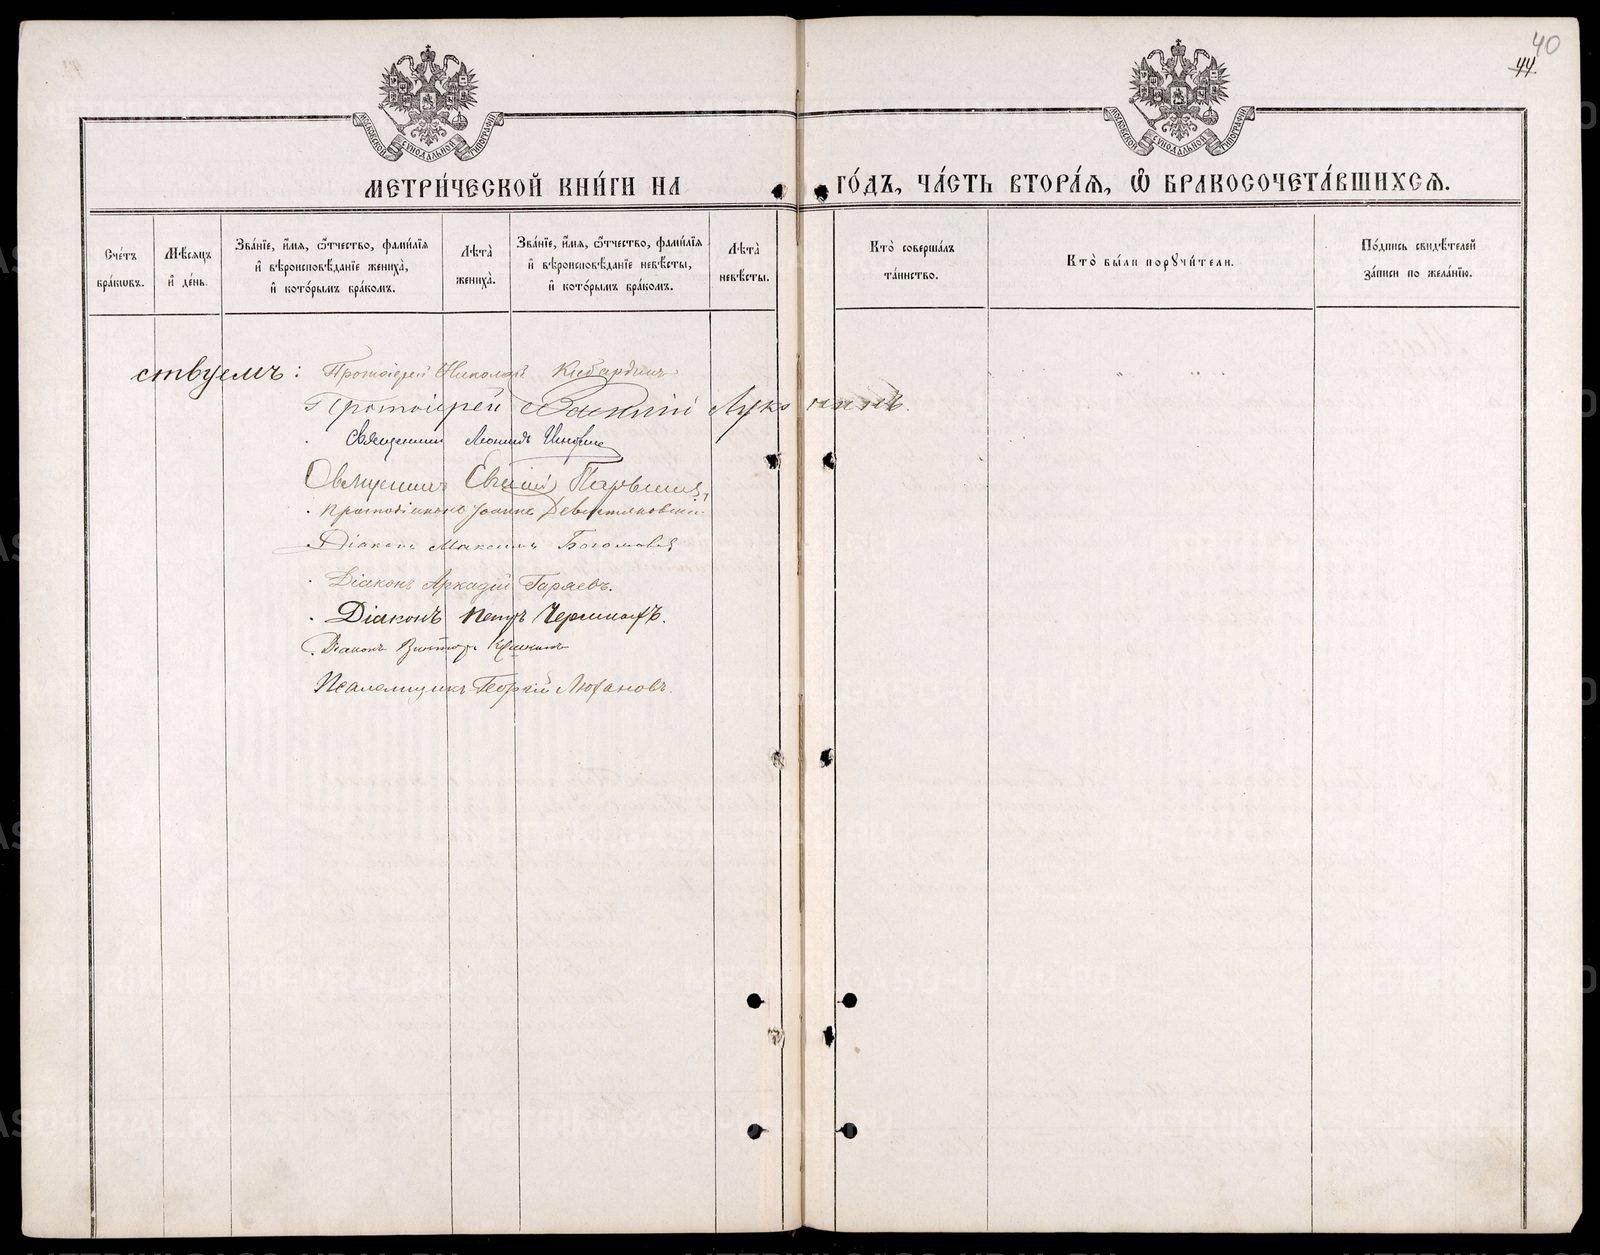 40
44
МОСКОВСКОЙ СѴНОДАЛЬНОЙ ТИПОГРАФІИ
МОСКОВСКОЙ СѴНОДАЛЬНОЙ ТИПОГРАФІИ
МЕТРИ́ЧЕСКОЙ КНИ́ГИ НА ГО́ДЪ, ЧА́СТЬ ВТОРА́Я, Ѽ БРАКОСОЧЕТА́ВШИХСЯ.
Сче́тъ бра́кѡвъ.
Мѣ́сяцъ и҆ де́нь.
Зва́нїе, и҆́мя, ѻ҆́тчество, фами́лїя и҆ вѣроисповѣ́данїе жениха̀, и҆ кото́рымъ бра́комъ.
Лѣ́та жениха̀.
Зва́нїе, и҆́мя, ѻ҆́тчество, фами́лїя и҆ вѣроисповѣ́данїе невѣ́сты, и҆ кото́рымъ бра́комъ.
Лѣ́та невѣ́сты.
Кто̀ соверша́лъ та́инство.
Кто̀ бы́ли порꙋчи́тели.
По́дпись свидѣ́телей за́писи по жела́нїю.
ствуемъ: Протоіерей Николай Кибардинъ
Протоіерей Василій Луканинъ.
Священникъ Леонидъ
Священникъ Евгеній
Протодіаконъ Іоаннъ Девятьяровскій
Діаконъ Максимъ Богомоловъ
Діаконъ Аркадій Гаряевъ.
Діаконъ Петръ
Діаконъ Викторъ
Псаломщикъ Георгій Люхановъ.
METRIKI.GASO-URAL.RU